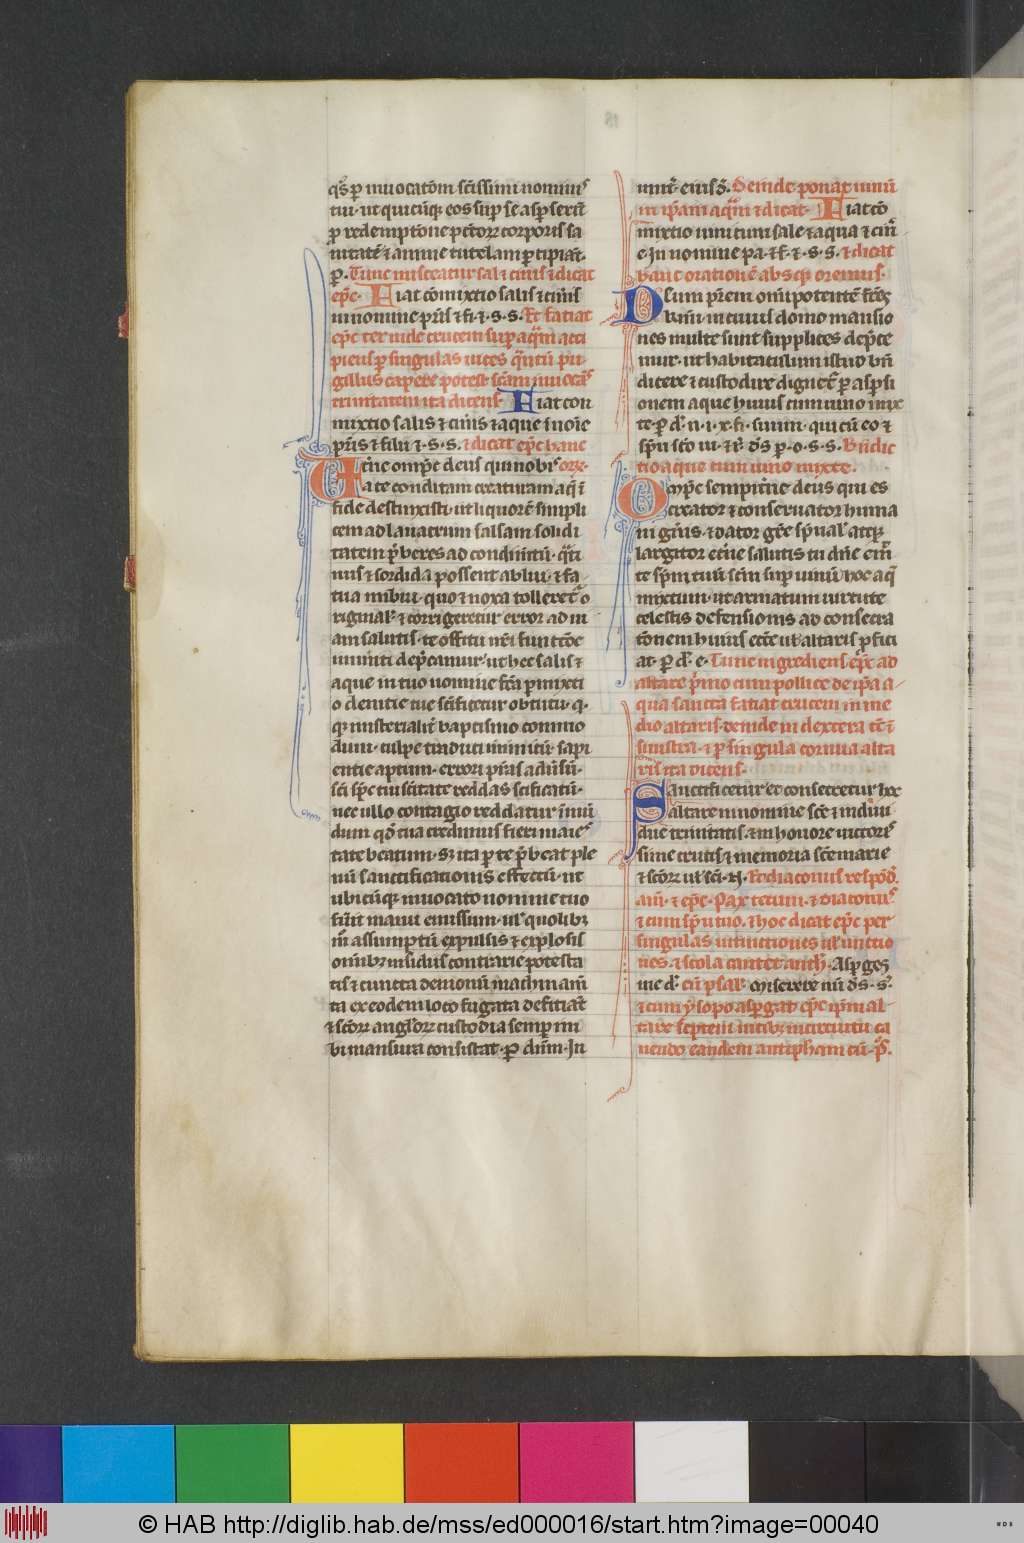 qs p inuocatom scissimi nominis
tui. ut quicuq eos sup se aspserit
p redemptone pctorz corporis sa
nitate & anime tutelam pcipiat.
p. Tunc misceatur sal & cinis & dicat
epc. Fiat comixtio salis & cinis
in nomine pris & fi. & s. s. Et faciat
epc ter inde crucem sup aqm acci
piens p singulas uices qntu pu
gillus capere potest scam inuocas
trinitatem ita dicens. Fiat con
mixtio salis & cinis & aque i noie
pris & filii & s. s. & dicat epc hanc
Et'ne omps deus qui nobis orz.
a te conditam creaturam aq i
fide destinxisti. ut liquore simpli
cem ad lauacrum salsam solidi
tatem pberes ad condintu. qti
nus & sordida possent ablui. & fa
tua imbui. quo & noxa tolleret' o
riginal' & corrigeretur error ad ui
am salutis. te offitii nri functoe
inuniti depcamur. ut hec salis &
aque in tuo nomine fca pmixti
o denitie tue scificetur obtutu. q.
q misterialit baptismo commo
dum. culpe traduci inimitu. sapi
entie aptum. errori prias adusu.
sci spc eiuscitate reddas scificatu.
nec ullo contagio reddatur inui
dum qd tua credimus fieri maies
tate beatum. sz ita p te pbeat ple
nu sanctificationis effectu. ut
ubicuq inuocato nomine tuo
fuit manu emissum. ul' quolibz
m assumptu expulsis & explosis
omibz insidiis contrarie potesta
tis & cuncta demonu machinam
ta ex eodem loco fugata deficiat
& scorz angelorz custodia semp mi
bi mansura consistat. p dnm. In
unit. eiusd. Deinde ponat uinu
in ipam aqm & dicat. Fiat co
mixtio uini cum sale & aqua & cin
e. In nomine pa. & f. & s. s. & dicat
hanc oratione absq oremus.
Dsum prem omipotente frez
kmi in cuius domo mansio
nes multe sunt supplices depce
mur. ut habitaculum istud bn
dicere & custodire dignet' p aspsi
onem aque huius cum uino mix
te. p d. n. i. x. fi. suum. qui cu eo &
spu sco ui. & r. ds p. o. s. s. Bndic
tio aque cum uino mixte.
Omps sempit'ne deus qui es
creator & conseruator huma
ni gnis. & dator gre spual' atq
largitor et'ne salutis tu dne emi
te spm tuu scm sup uinu hoc aq
mixtum. ut armatum uirtute
celestis defensionis ad consecra
tonem huius eccle ul' altaris pfici
at. p d. e. Tunc ingrediens epc ad
altare pmo cum pollice de ipa a
qua sancta faciat crucem in me
dio altaris. deinde in dextera et i
sinistra. & p singula cornua alta
ris ita dicens.
Sanctificetur et consecretur hoc
altare in nomine sce & indiui
due trinitatis. & in honore uictoris
sime crucis & memoria sce marie
& scorz ul' sci. N. Et diaconus respod.
am. & epc. Pax tecum. & diaconus
& cum spu tuo. & hoc dicat epc per
singulas intinctiones ul' unctio
nes. & scola cantet anth. Asperges
me d. cu psal. Miserere mi ds. s.
& cum ysopo aspgat epc ipm al
tare septem uicibz incircuitu ca
nendo eandem antipham cu ps.
© HAB http://diglib.hab.de/mss/ed000016/start.htm?image=00040